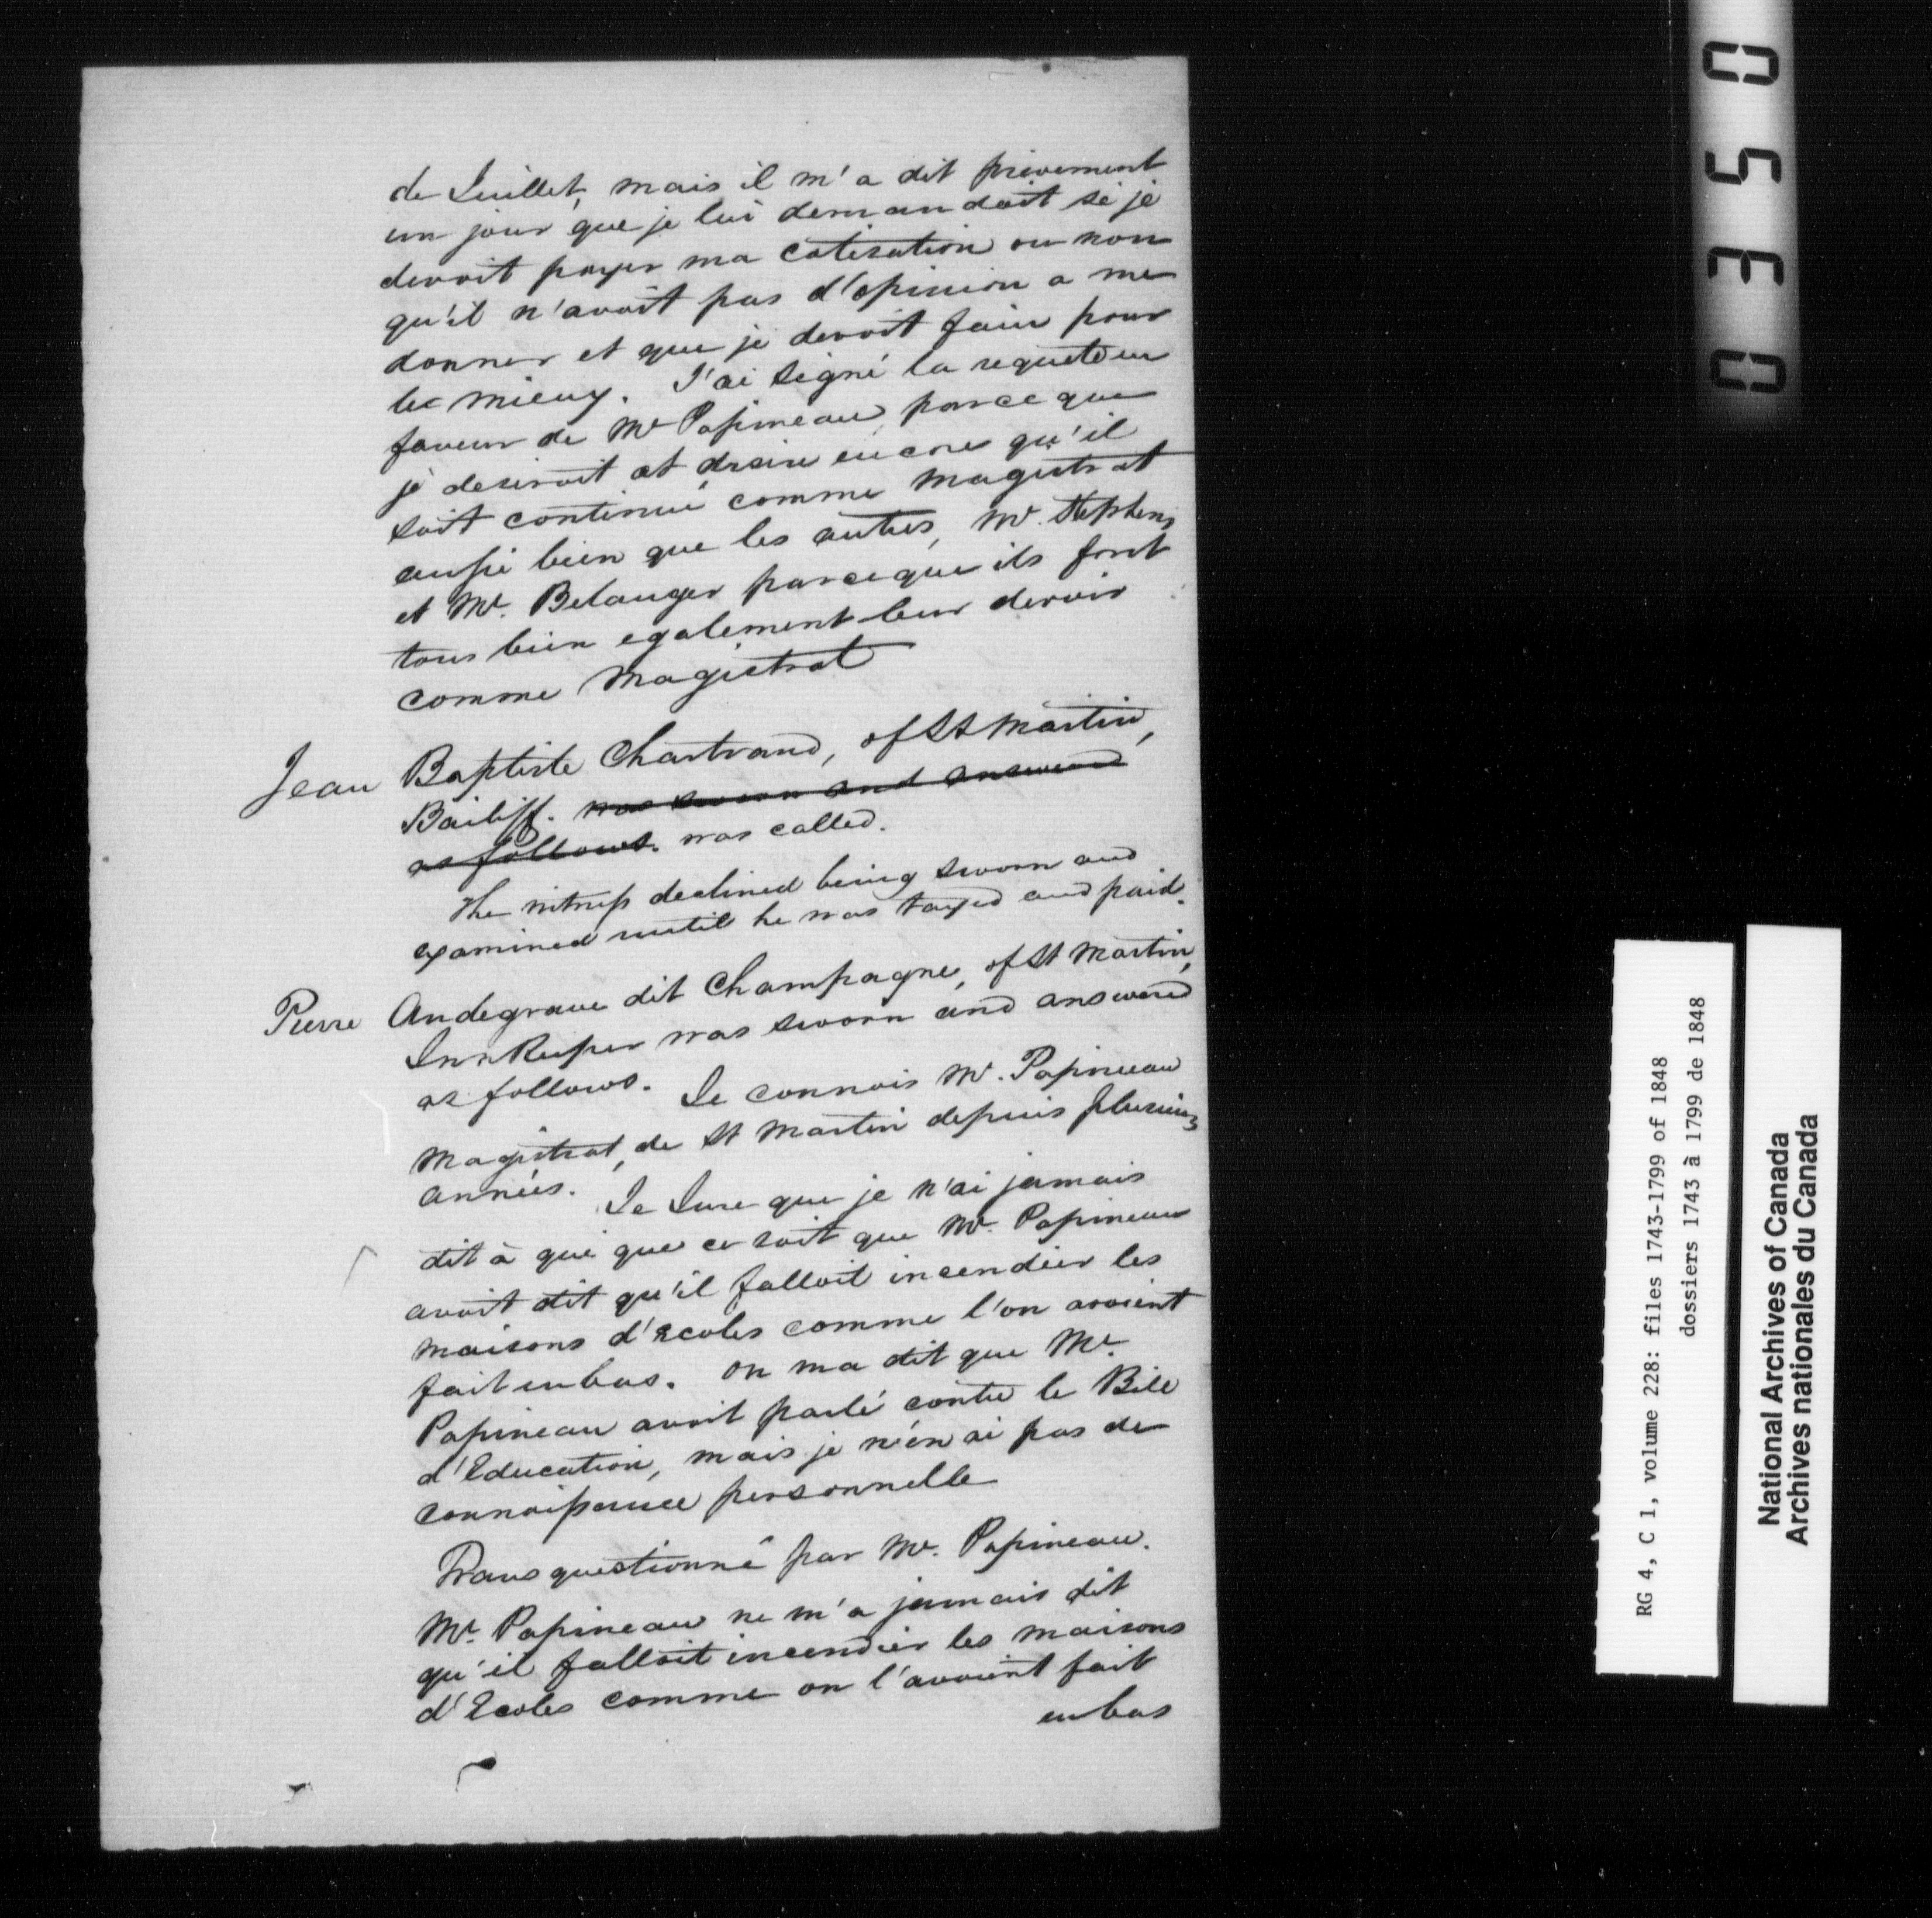 de Juillet, mais il m'a dit privement
un jour que je lui demandoit si je
devoit payer ma cotisation ou non
qu'il n'avoit pas d'opinion a me
donner et que je devoit faire pour
le mieux. J'ai signé la requete en
faveur de Mr Papineau, parce que
je desiroit et desire encore qu'il
soit continué comme magistrat
aussi bien que les autres, Mr. Stephens
et Mr. Belanger parceque ils font
tous bien egalement leur devoir
comme Magistrat
Jean Baptiste Chartrand, of St Martin,
Bailiff. was sworn and answered
as follows. was called.
The witness declined being sworn and
examined until he was taxed and paid.
Pierre Andegrave dit Champagne, of St Martin,
InnKeeper was sworn and answered
as follows. Je connois Mr. Papineau
Magistrat, de St Martin depuis plusieurs
années. Je Jure que je n'ai jamais
dit à qui que ce soit que Mr. Papineau
avoit dit qu'il falloit incendier les
maisons d'Ecoles comme l'on avoient
fait en bas. On ma dit que Mr.
Papineau avoit parlé contre le Bill
d'Education, mais je n'en ai pas de
connoissance personnelle
Transquestionné par Mr. Papineau.
Mr. Papineau ne m'a jamais dit
qu'il falloit incendier les maisons
d'Ecoles comme on l'avoient fait
en bas
0350
RG 4, C 1, volume 228: files 1743-1799 of 1848
dossiers 1743 à 1799 de 1848
National Archives of Canada
Archives nationales du Canada